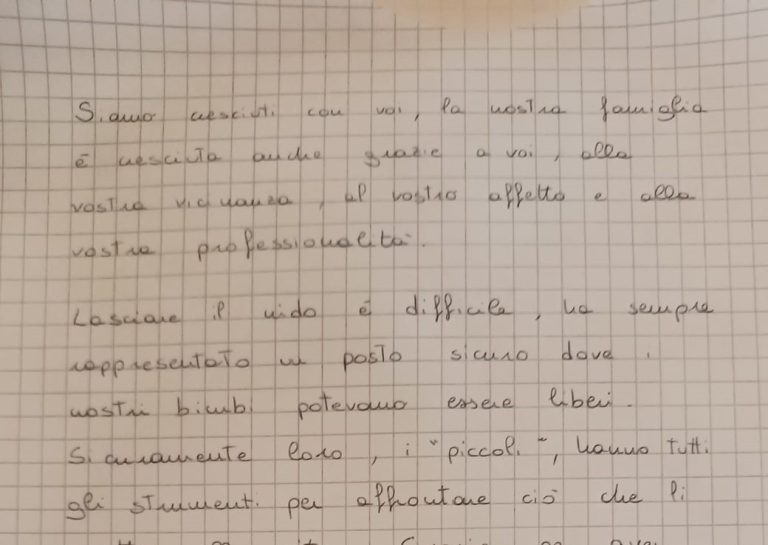 Siamo cresciuti con voi, la nostra famiglia
è cresciuta anche grazie a voi, alla
vostra vicinanza, al vostro affetto e alla
vostra professionalità.
Lasciare il nido è difficile, ha sempre
rappresentato un posto sicuro dove i
nostri bimbi potevano essere liberi.
Sicuramente loro, i "piccoli", hanno tutti
gli strumenti per affrontare ciò che li